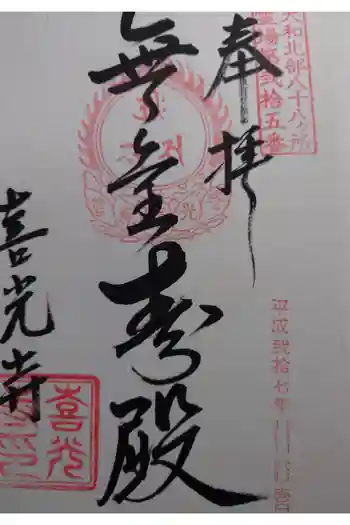 大和北部八十八ヶ所
霊場第弐拾五番
奉拝
平成弐拾七年
無量壽殿
喜光寺
喜光